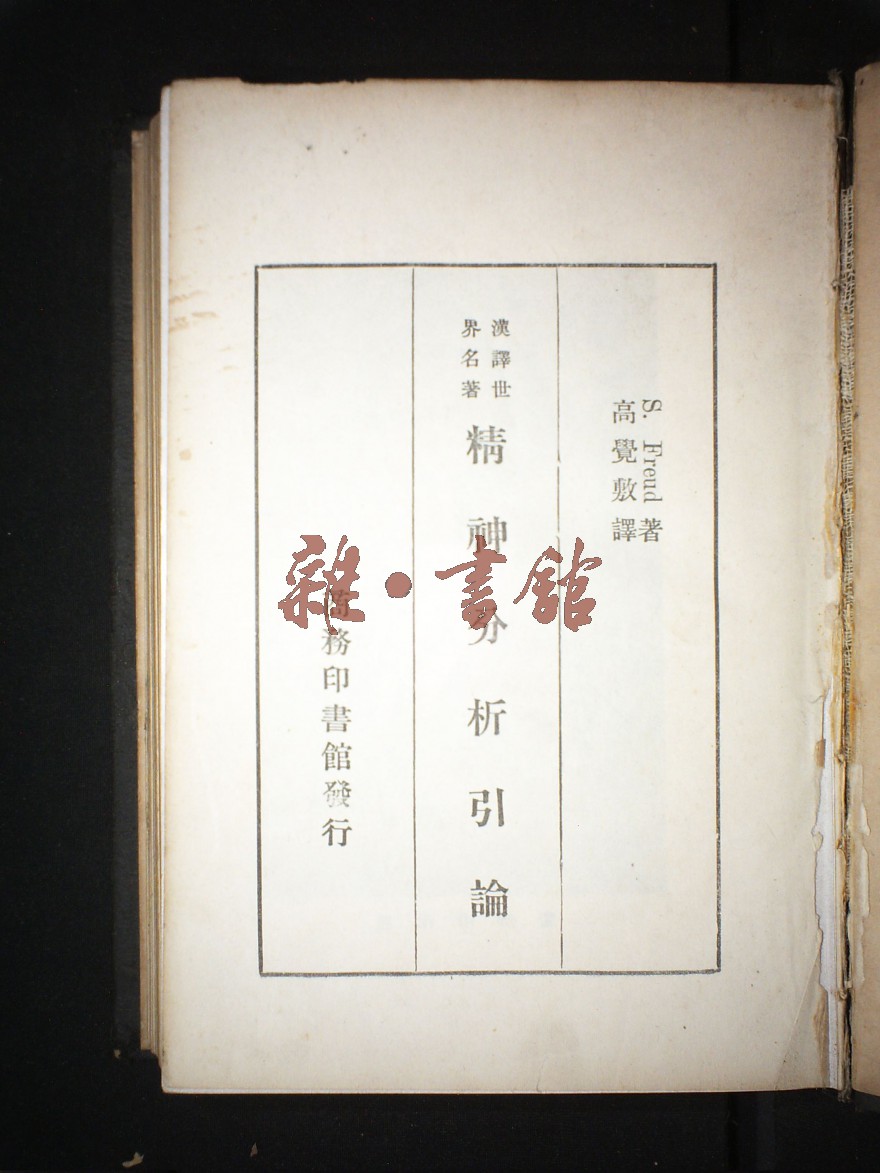 S. Freud 著
高覺敷譯
漢譯世
界名著
精神分析引論
商務印書館發行
雜·書館